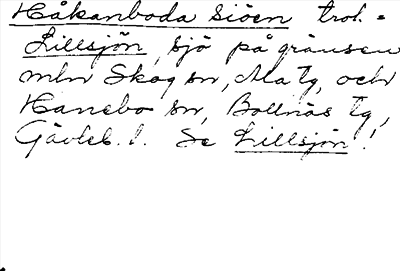 Håkanboda siöen trol. =
Lillsjön, sjö på gränsen
mln Skog sn, Ala tg, och
Hanebo sn, Bollnäs tg,
Gävleb. l. Se Lillsjön!